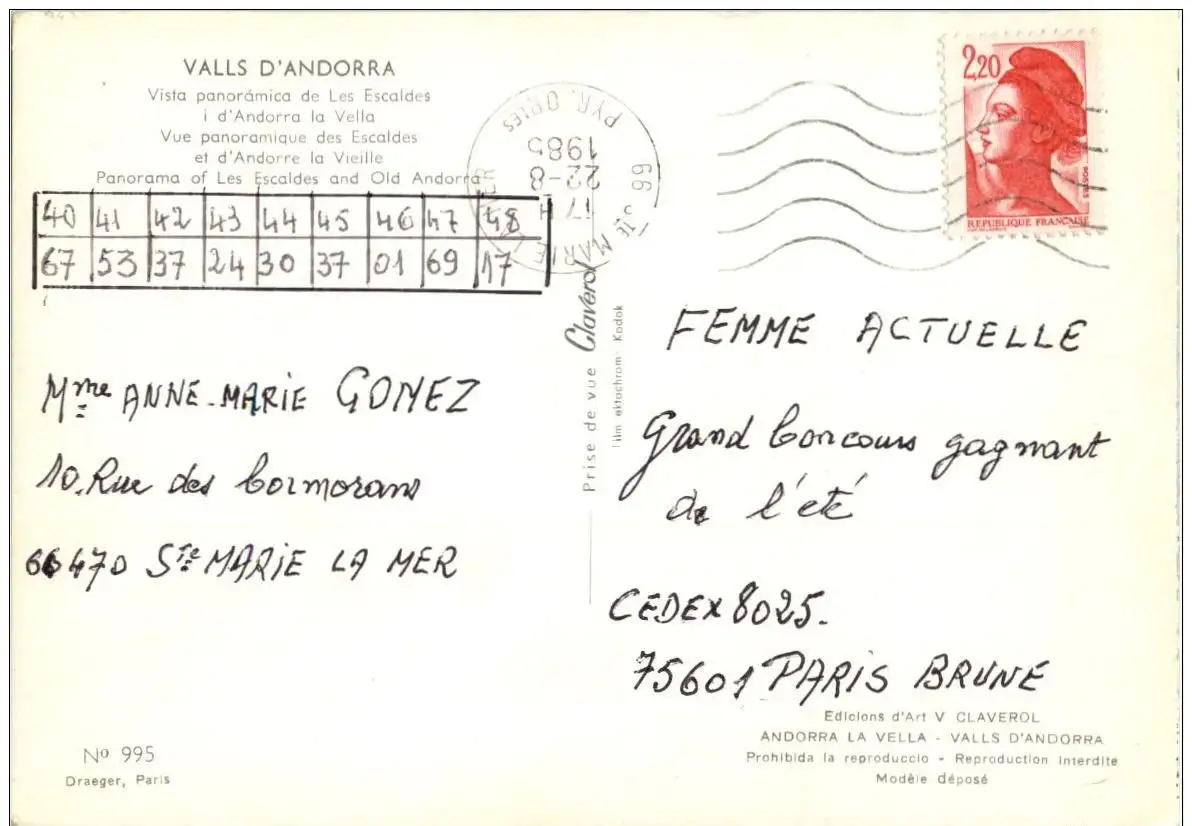 VALLS D'ANDORRA
Vista panorámica de Les Escaldes
i d'Andorra la Vella
Vue panoramique des Escaldes
et d'Andorre la Vieille
Panorama of Les Escaldes and Old Andorra
40 41 42 43 44 45 46 47 48
67 53 37 24 30 37 01 69 17
Mme ANNE-MARIE GOMEZ
10, Rue des Cormorans
66470 Ste MARIE LA MER
Nº 995
Draeger, Paris
Prise de vue Claverol
Film ektachrom Kodak
66 STE MARIE
17 H
22-8
1985
PYR. ORles
2,20
POSTES
REPUBLIQUE FRANÇAISE
FEMME ACTUELLE
Grand Concours gagnant
de l'été
CEDEX 8025.
75601 PARIS BRUNE
Edicions d'Art V CLAVEROL
ANDORRA LA VELLA - VALLS D'ANDORRA
Prohibida la reproduccio - Reproduction interdite
Modèle déposé